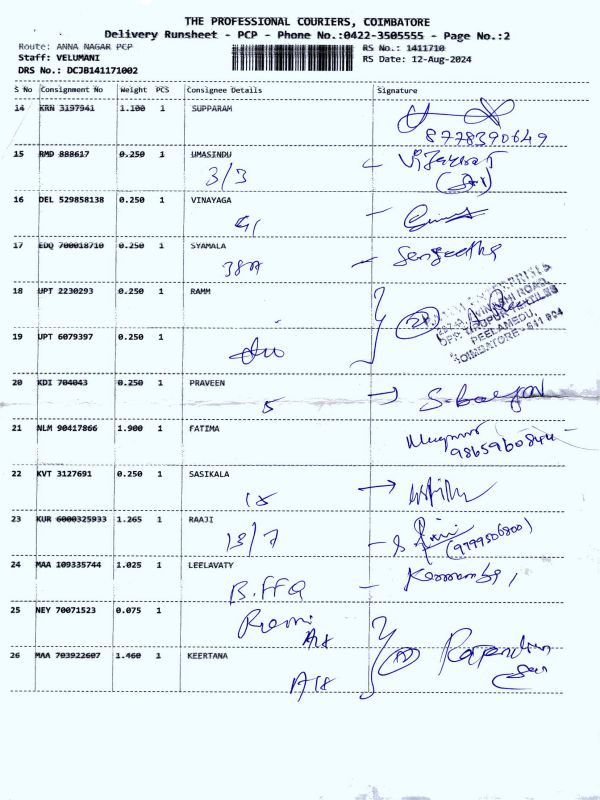 THE PROFESSIONAL COURIERS, COIMBATORE
Delivery Runsheet - PCP - Phone No.:0422-3505555 - Page No.:2
Route: ANNA NAGAR PCP
Staff: VELUMANI
DRS No.: DCJB141171002
RS No.: 1411710
RS Date: 12-Aug-2024
S No Consignment No Weight PCS Consignee Details Signature
14 KRN 3197941 1.100 1 SUPPARAM
8778390649
15 RMD 888617 0.250 1 UMASINDU
3/3
16 DEL 529858138 0.250 1 VINAYAGA
17 EDQ 700018710 0.250 1 SYAMALA
38A Sengeetha
18 UPT 2230293 0.250 1 RAMM
OPP. TIRUPUR TEXTILES
PEELAMEDU,
COIMBATORE - 641 004
19 UPT 6079397 0.250 1
20 KDI 704043 0.250 1 PRAVEEN
5
21 NLM 90417866 1.900 1 FATIMA
9865960844
22 KVT 3127691 0.250 1 SASIKALA
18
23 KUR 6000325933 1.265 1 RAAJI
13/7 (9799506800)
24 MAA 109335744 1.025 1 LEELAVATY
B.FFQ
25 NEY 70071523 0.075 1
A18
26 MAA 703922607 1.460 1 KEERTANA
A18